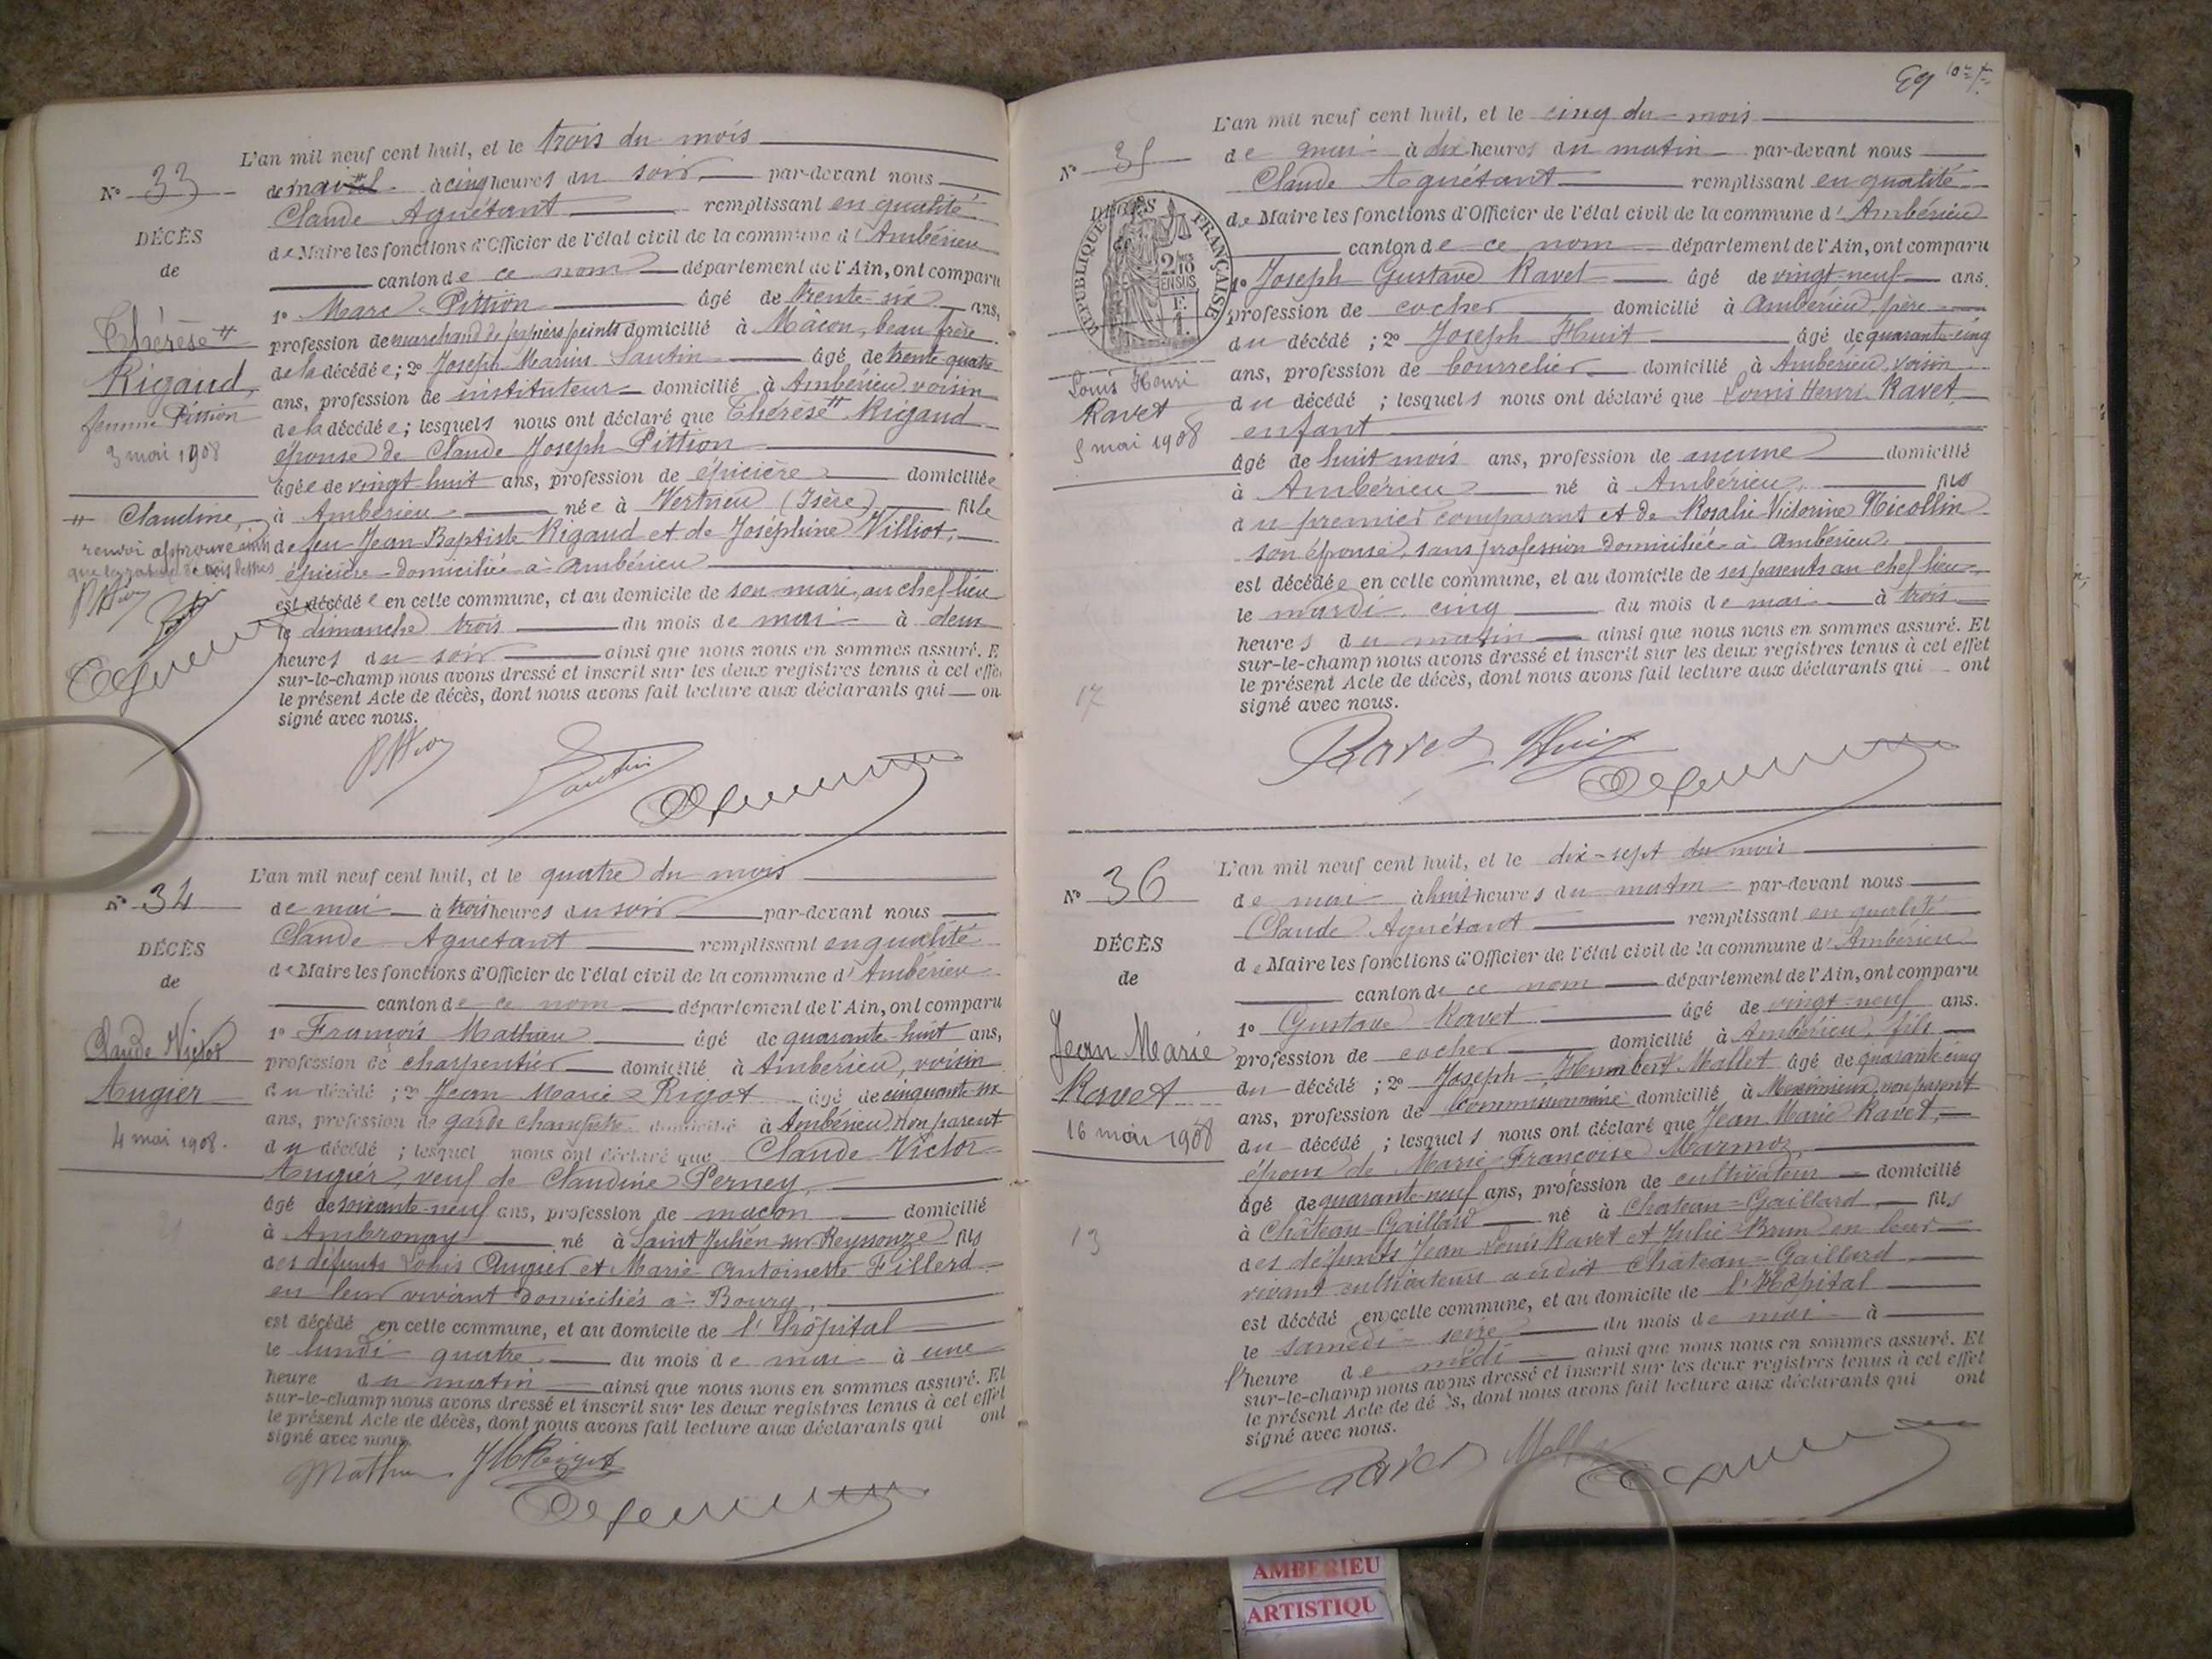 L'an mil neuf cent huit, et le trois du mois
N° 33
de mai à cinq heures du soir par-devant nous
Claude Aguétant remplissant en qualité
DÉCÈS
de Maire les fonctions d'Officier de l'état civil de la commune d'Ambérieu
de
canton de ce nom département de l'Ain, ont comparu
1° Marc Pittion âgé de trente-six ans,
Thérèse #
profession de marchand de papiers peints domicilié à Mâcon, beau frère
de la décédée; 2° Joseph Marius Santin âgé de trente-quatre
Rigaud,
ans, profession de instituteur domicilié à Ambérieu, voisin
femme Pittion
de la décédée; lesquels nous ont déclaré que Thérèse # Rigaud
3 mai 1908
épouse de Claude Joseph Pittion
âgée de vingt huit ans, profession de épicière domiciliée
# Claudine,
à Ambérieu née à Vertrieu (Isère) fille
renvoi approuvé ainsi
de feu Jean Baptiste Rigaud et de Joséphine Villiot,
que la rature de trois lettres
épicière domiciliée à Ambérieu
est décédée en cette commune, et au domicile de son mari, au chef lieu
le dimanche trois du mois de mai à deux
heures du soir ainsi que nous nous en sommes assuré. E
sur-le-champ nous avons dressé et inscrit sur les deux registres tenus à cet effe
le présent Acte de décès, dont nous avons fait lecture aux déclarants qui on
signé avec nous.
Pittion Santin
L'an mil neuf cent huit, et le quatre du mois
N° 34
de mai à trois heures du soir par-devant nous
Claude Aguétant remplissant en qualité
DÉCÈS
de Maire les fonctions d'Officier de l'état civil de la commune d'Ambérieu
de
canton de ce nom département de l'Ain, ont comparu
1° François Mathieu âgé de quarante-huit ans,
Claude Victor
profession de charpentier domicilié à Ambérieu, voisin
Augier
du décédé; 2° Jean Marie Rigot âgé de cinquante-six
ans, profession de garde champêtre domicilié à Ambérieu, non parent
4 mai 1908.
du décédé; lesquel nous ont déclaré que Claude Victor
Augier, veuf de Claudine Perney,
âgé de soixante-neuf ans, profession de maçon domicilié
à Ambronay né à Saint Julien sur Reyssouze fils
des défunts Louis Augier et Marie Antoinette Fillerd
en leur vivant domiciliés à Bourg,
est décédé en cette commune, et au domicile de l'hôpital
le lundi quatre du mois de mai à une
heure du matin ainsi que nous nous en sommes assuré. Et
sur-le-champ nous avons dressé et inscrit sur les deux registres tenus à cet effet
le présent Acte de décès, dont nous avons fait lecture aux déclarants qui ont
signé avec nous.
Mathieu JM Rigot
L'an mil neuf cent huit, et le cinq du mois
N° 35
de mai à dix heures du matin par-devant nous
Claude Aguétant remplissant en qualité
RÉPUBLIQUE FRANÇAISE
de Maire les fonctions d'Officier de l'état civil de la commune d'Ambérieu
canton de ce nom département de l'Ain, ont comparu
2/10 EN SUS
1° Joseph Gustave Ravet âgé de vingt-neuf ans.
profession de cocher domicilié à Ambérieu, père
du décédé; 2° Joseph Huit âgé de quarante-cinq
Louis Henri
ans, profession de bourrelier domicilié à Ambérieu, voisin
Ravet
du décédé; lesquels nous ont déclaré que Louis Henri Ravet,
5 mai 1908
enfant
âgé de huit mois ans, profession de aucune domicilié
à Ambérieu né à Ambérieu, fils
du premier comparant et de Rosalie Victorine Nicollin
son épouse, sans profession domiciliée à Ambérieu,
est décédée en cette commune, et au domicile de ses parents au chef lieu,
le mardi cinq du mois de mai à trois
heures du matin ainsi que nous nous en sommes assuré. Et
sur-le-champ nous avons dressé et inscrit sur les deux registres tenus à cet effet
17
le présent Acte de décès, dont nous avons fait lecture aux déclarants qui ont
signé avec nous.
Ravet
L'an mil neuf cent huit, et le dix-sept du mois
N° 36
de mai à huit heures du matin par-devant nous
Claude Aguétant remplissant en qualité
DÉCÈS
de Maire les fonctions d'Officier de l'état civil de la commune d'Ambérieu
de
canton de ce nom département de l'Ain, ont comparu
1° Gustave Ravet âgé de vingt-neuf ans.
Jean Marie
profession de cocher domicilié à Ambérieu, fils
Ravet
du décédé; 2° Joseph Humbert Mallet âgé de quarante cinq
ans, profession de commissionnaire domicilié à Meximieux, non parent
16 mai 1908
du décédé; lesquels nous ont déclaré que Jean Marie Ravet,
époux de Marie Françoise Marmoz,
âgé de quarante-neuf ans, profession de cultivateur domicilié
à Château-Gaillard né à Chateau-Gaillard fils
13
des défunts Jean Louis Ravet et Julie Brun en leur
vivant cultivateurs audit Chateau-Gaillard
est décédé en cette commune, et au domicile de l'Hôpital
le samedi seize du mois de mai à
l'heure de midi ainsi que nous nous en sommes assuré. Et
sur-le-champ nous avons dressé et inscrit sur les deux registres tenus à cet effet
le présent Acte de décès, dont nous avons fait lecture aux déclarants qui ont
signé avec nous.
Ravet
AMBERIEU
ARTISTIQU